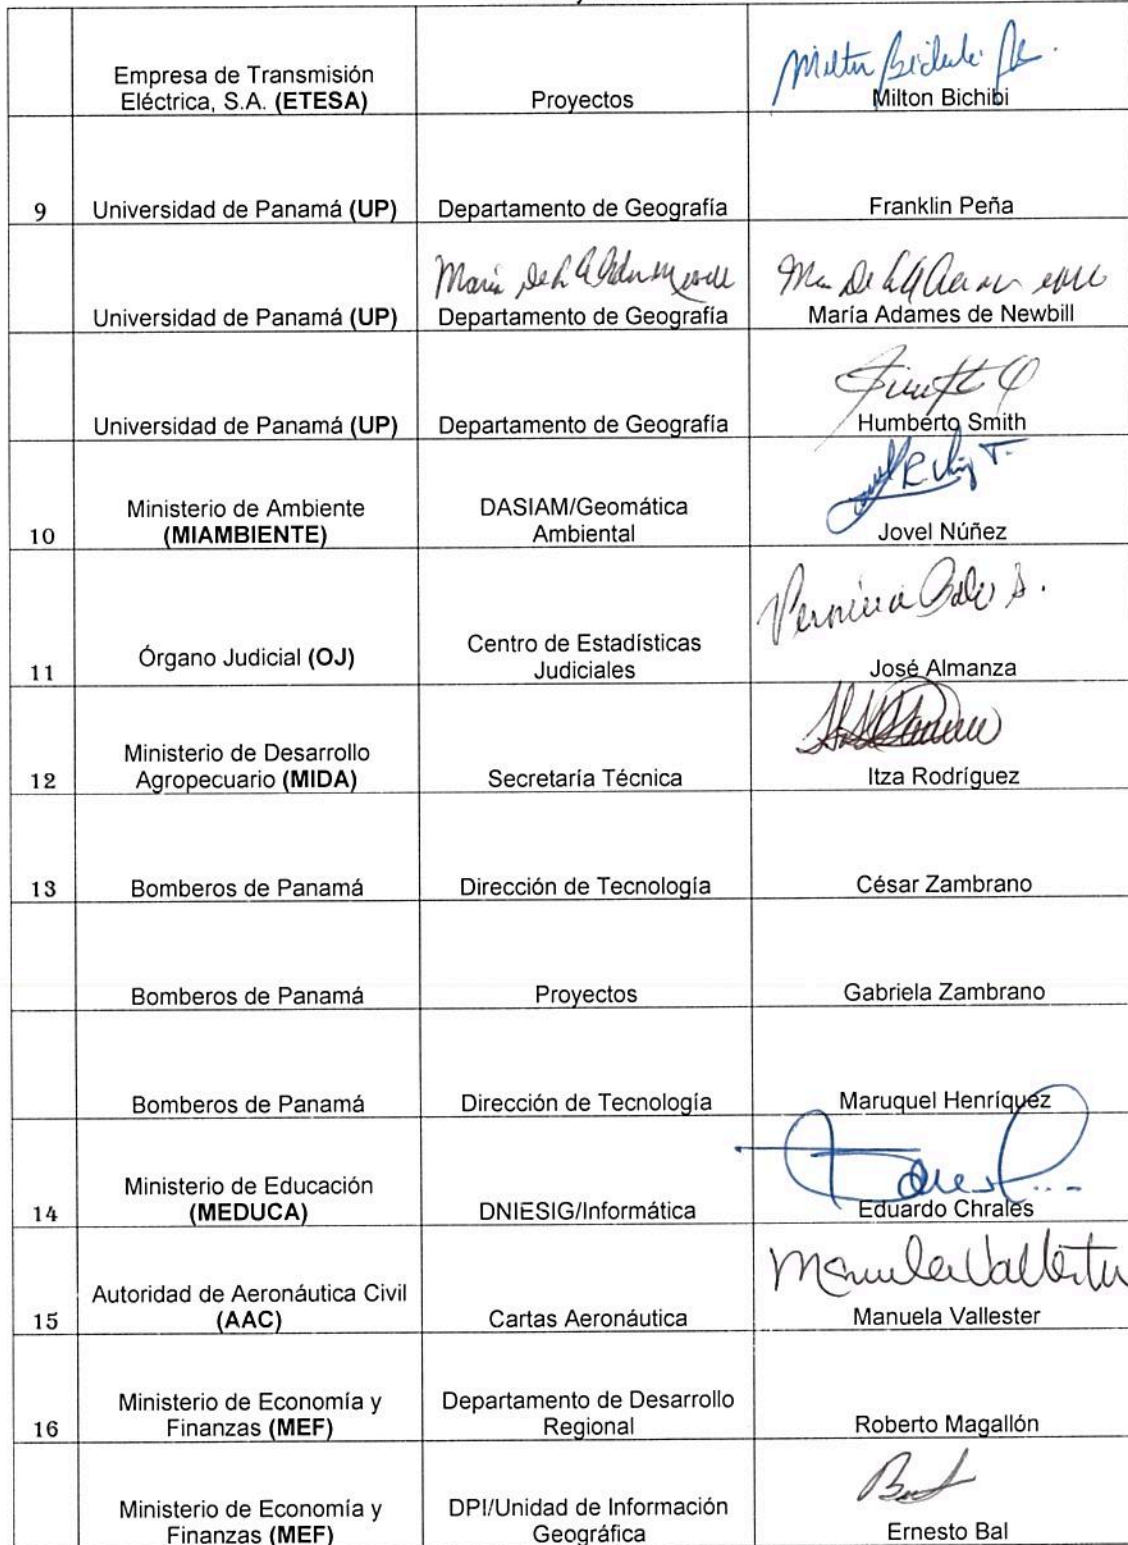 Empresa de Transmisión
Eléctrica, S.A. (ETESA)
Proyectos
Milton Bichibi
Milton Bichibi
9
Universidad de Panamá (UP)
Departamento de Geografía
Franklin Peña
María De
Universidad de Panamá (UP)
Departamento de Geografía
María Adames de Newbill
Universidad de Panamá (UP)
Departamento de Geografía
Humberto Smith
10
Ministerio de Ambiente
(MIAMBIENTE)
DASIAM/Geomática
Ambiental
Jovel Núñez
11
Órgano Judicial (OJ)
Centro de Estadísticas
Judiciales
Verónica
José Almanza
12
Ministerio de Desarrollo
Agropecuario (MIDA)
Secretaría Técnica
Itza Rodríguez
13
Bomberos de Panamá
Dirección de Tecnología
César Zambrano
Bomberos de Panamá
Proyectos
Gabriela Zambrano
Bomberos de Panamá
Dirección de Tecnología
Maruquel Henríquez
14
Ministerio de Educación
(MEDUCA)
DNIESIG/Informática
Eduardo Chrales
15
Autoridad de Aeronáutica Civil
(AAC)
Cartas Aeronáutica
Manuela Vallester
Manuela Vallester
16
Ministerio de Economía y
Finanzas (MEF)
Departamento de Desarrollo
Regional
Roberto Magallón
Ministerio de Economía y
Finanzas (MEF)
DPI/Unidad de Información
Geográfica
Ernesto Bal